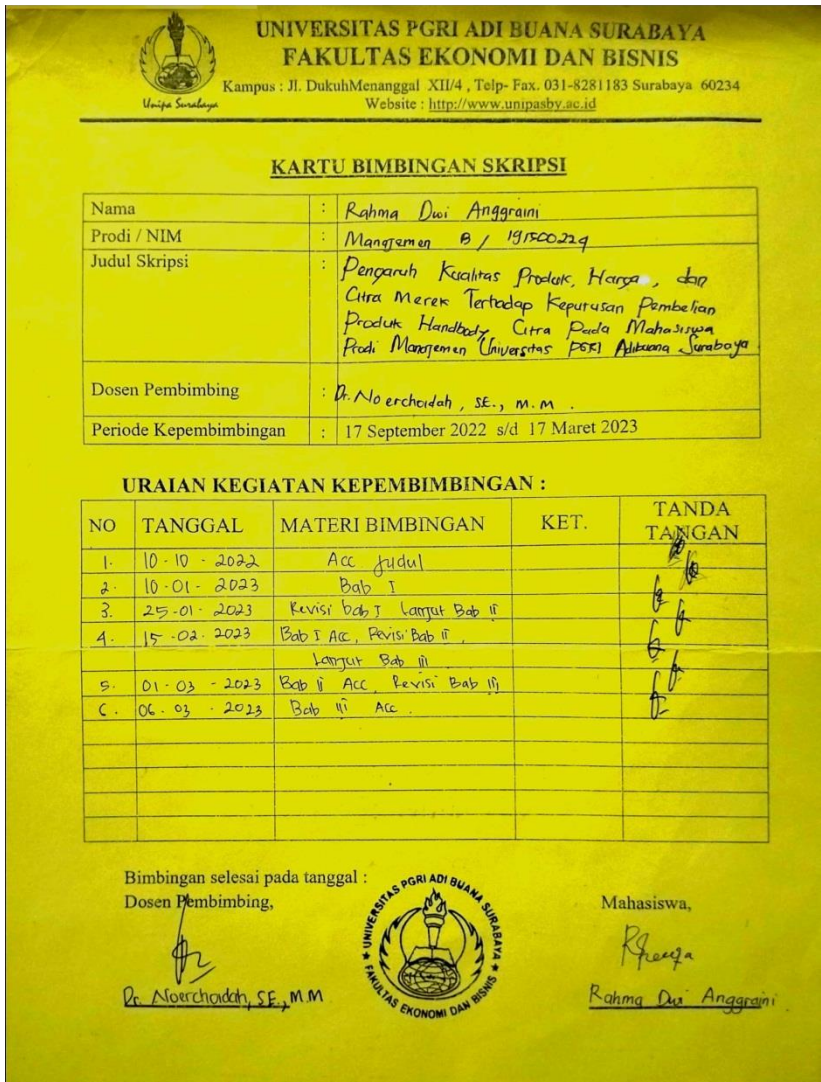 UNIVERSITAS PGRI ADI BUANA SURABAYA
FAKULTAS EKONOMI DAN BISNIS
Kampus : Jl. DukuhMenanggal XII/4 , Telp- Fax. 031-8281183 Surabaya 60234
Website : http://www.unipasby.ac.id
Unipa Surabaya
KARTU BIMBINGAN SKRIPSI
Nama : Rahma Dwi Anggraini
Prodi / NIM : Manajemen B / 191500229
Judul Skripsi : Pengaruh Kualitas Produk, Harga, dan
Citra Merek Terhadap Keputusan Pembelian
Produk Handbody Citra Pada Mahasiswa
Prodi Manajemen Universitas PGRI Adibuana Surabaya
Dosen Pembimbing : Dr. Noerchoidah, SE., M.M.
Periode Kepembimbingan : 17 September 2022 s/d 17 Maret 2023
URAIAN KEGIATAN KEPEMBIMBINGAN :
NO TANGGAL MATERI BIMBINGAN KET. TANDA TANGAN
1. 10-10-2022 Acc Judul
2. 10-01-2023 Bab I
3. 25-01-2023 Revisi bab I Lanjut Bab II
4. 15-02-2023 Bab I Acc, Revisi Bab II,
Lanjut Bab III
5. 01-03-2023 Bab II Acc, Revisi Bab III
6. 06-03-2023 Bab III Acc.
Bimbingan selesai pada tanggal :
Dosen Pembimbing, Mahasiswa,
UNIVERSITAS PGRI ADI BUANA SURABAYA
FAKULTAS EKONOMI DAN BISNIS
Dr. Noerchoidah, SE., M.M Rahma Dwi Anggraini